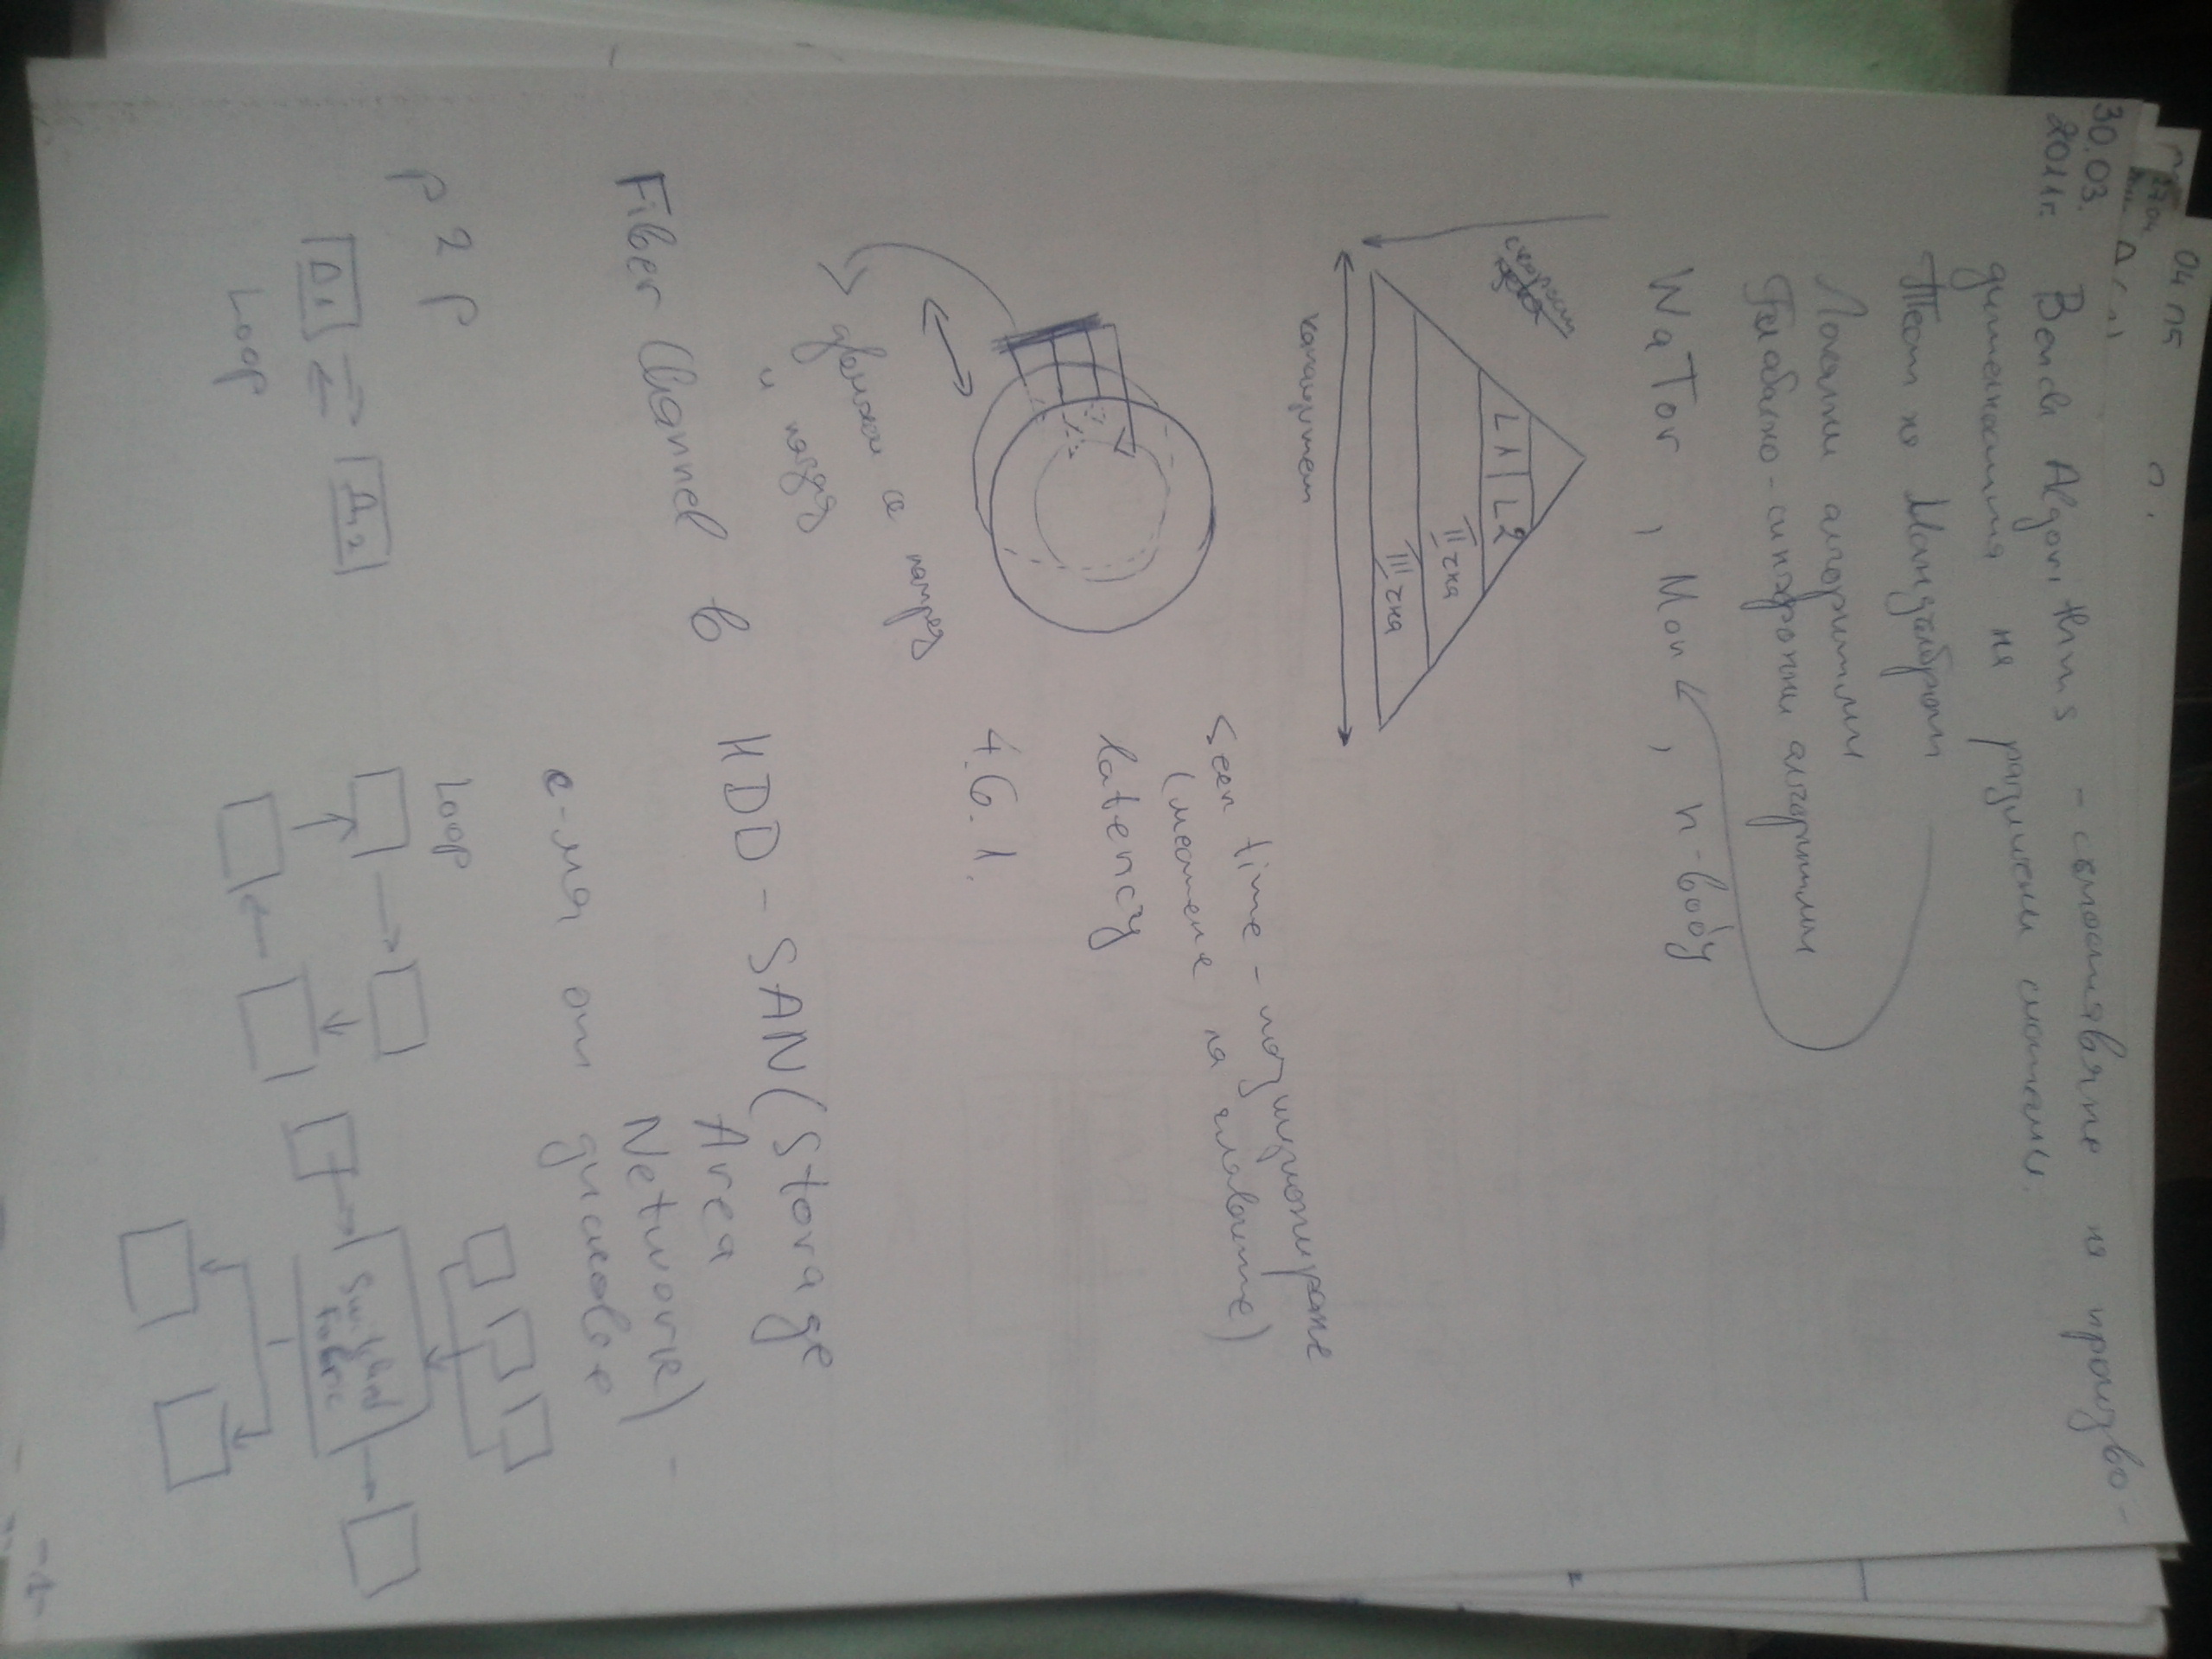 04 П5
27.04
30.03.
2011г.
Bench Algorithms - съпоставяне на произво-
дителността на различни системи.
Тест на Манделброт
Локални алгоритми
Глобално-синхронни алгоритми
WaTor, Man, n-body
скорост
цена
L1 L2
II чна
III чна
капацитет
Seen time - позициониране
(местене на главите)
latency
4.6.1.
движи се напред
и назад
Fiber Channel в HDD - SAN (Storage
Area
Network) -
с-ма от дискове
p2p
Loop
Д1
Д2
Loop
Switched
Fabric
-1-